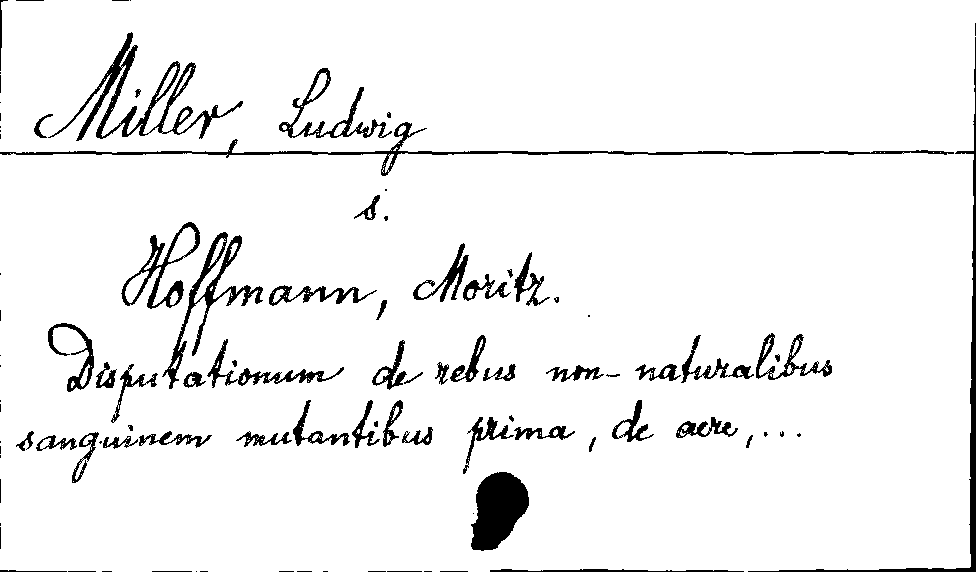 Miller, Ludwig
s.
Hoffmann, Moritz.
Disputationum de rebus non-naturalibus
sanguinem mutantibus prima, de aere,...